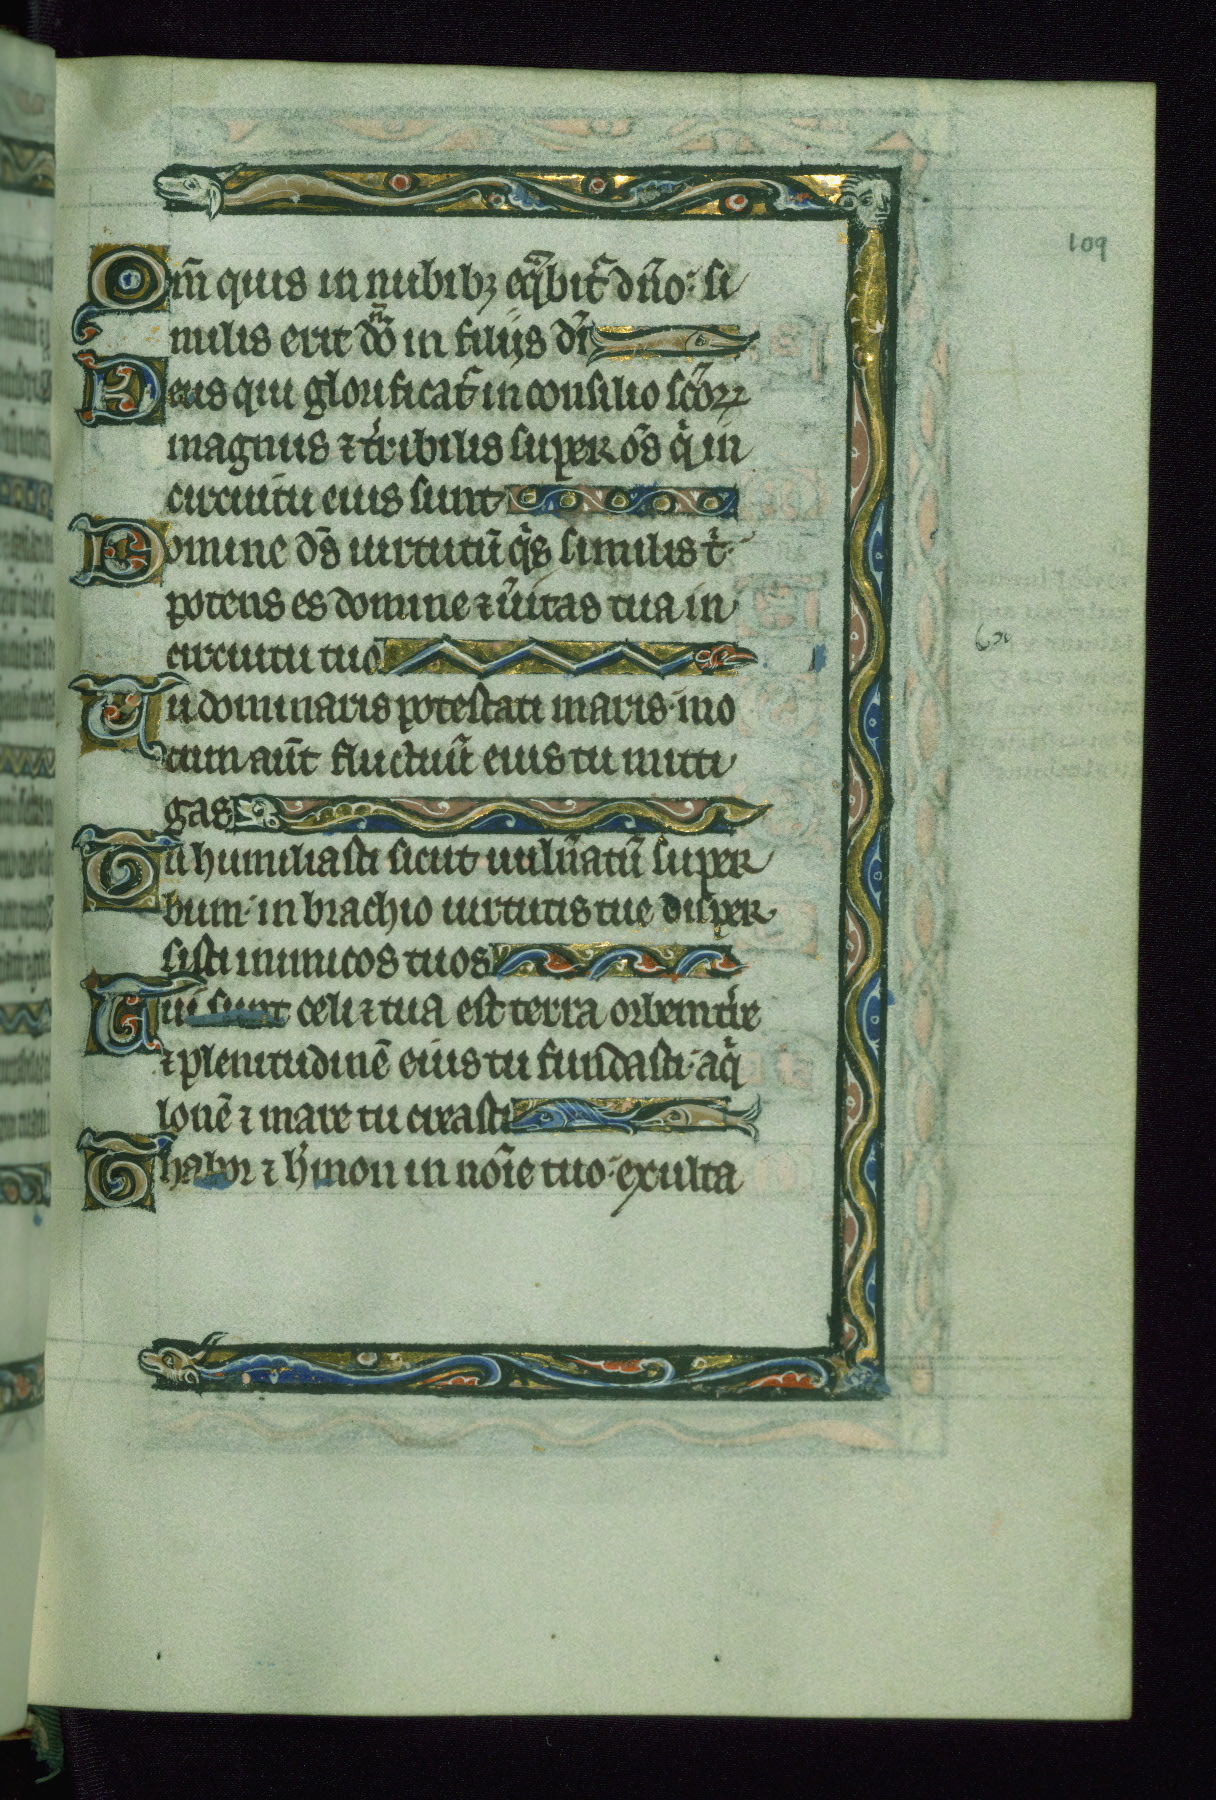 109
Qm̄ quis in nubibꝫ eq̄bit᷑ dn̄o: si
milis erit do͞ in filijs di᷑
Deus qui glorificat᷑ in consilio sc̄oꝝ
magnus ⁊ t᷑ribilis super om̄s qͥ in
circuitu eius sunt
Domine ds̄ uirtutū qͥs similis t̄
potens es domine ⁊ u᷑itas tua in
circuitu tuo
Tu dominaris potestati maris· mo
tum aūt fluctuū eius tu mitti
gas
Tu humiliasti sicut uuln᷑atū super
bum· in brachio uirtutis tue disper
sisti inimicos tuos
Tui sunt celi ⁊ tua est terra orbem t᷑re
⁊ plenitudinē eius tu fundasti· aqͥ
lonē ⁊ mare tu creasti
Thabor ⁊ h᷑mon in noīe tuo· exulta